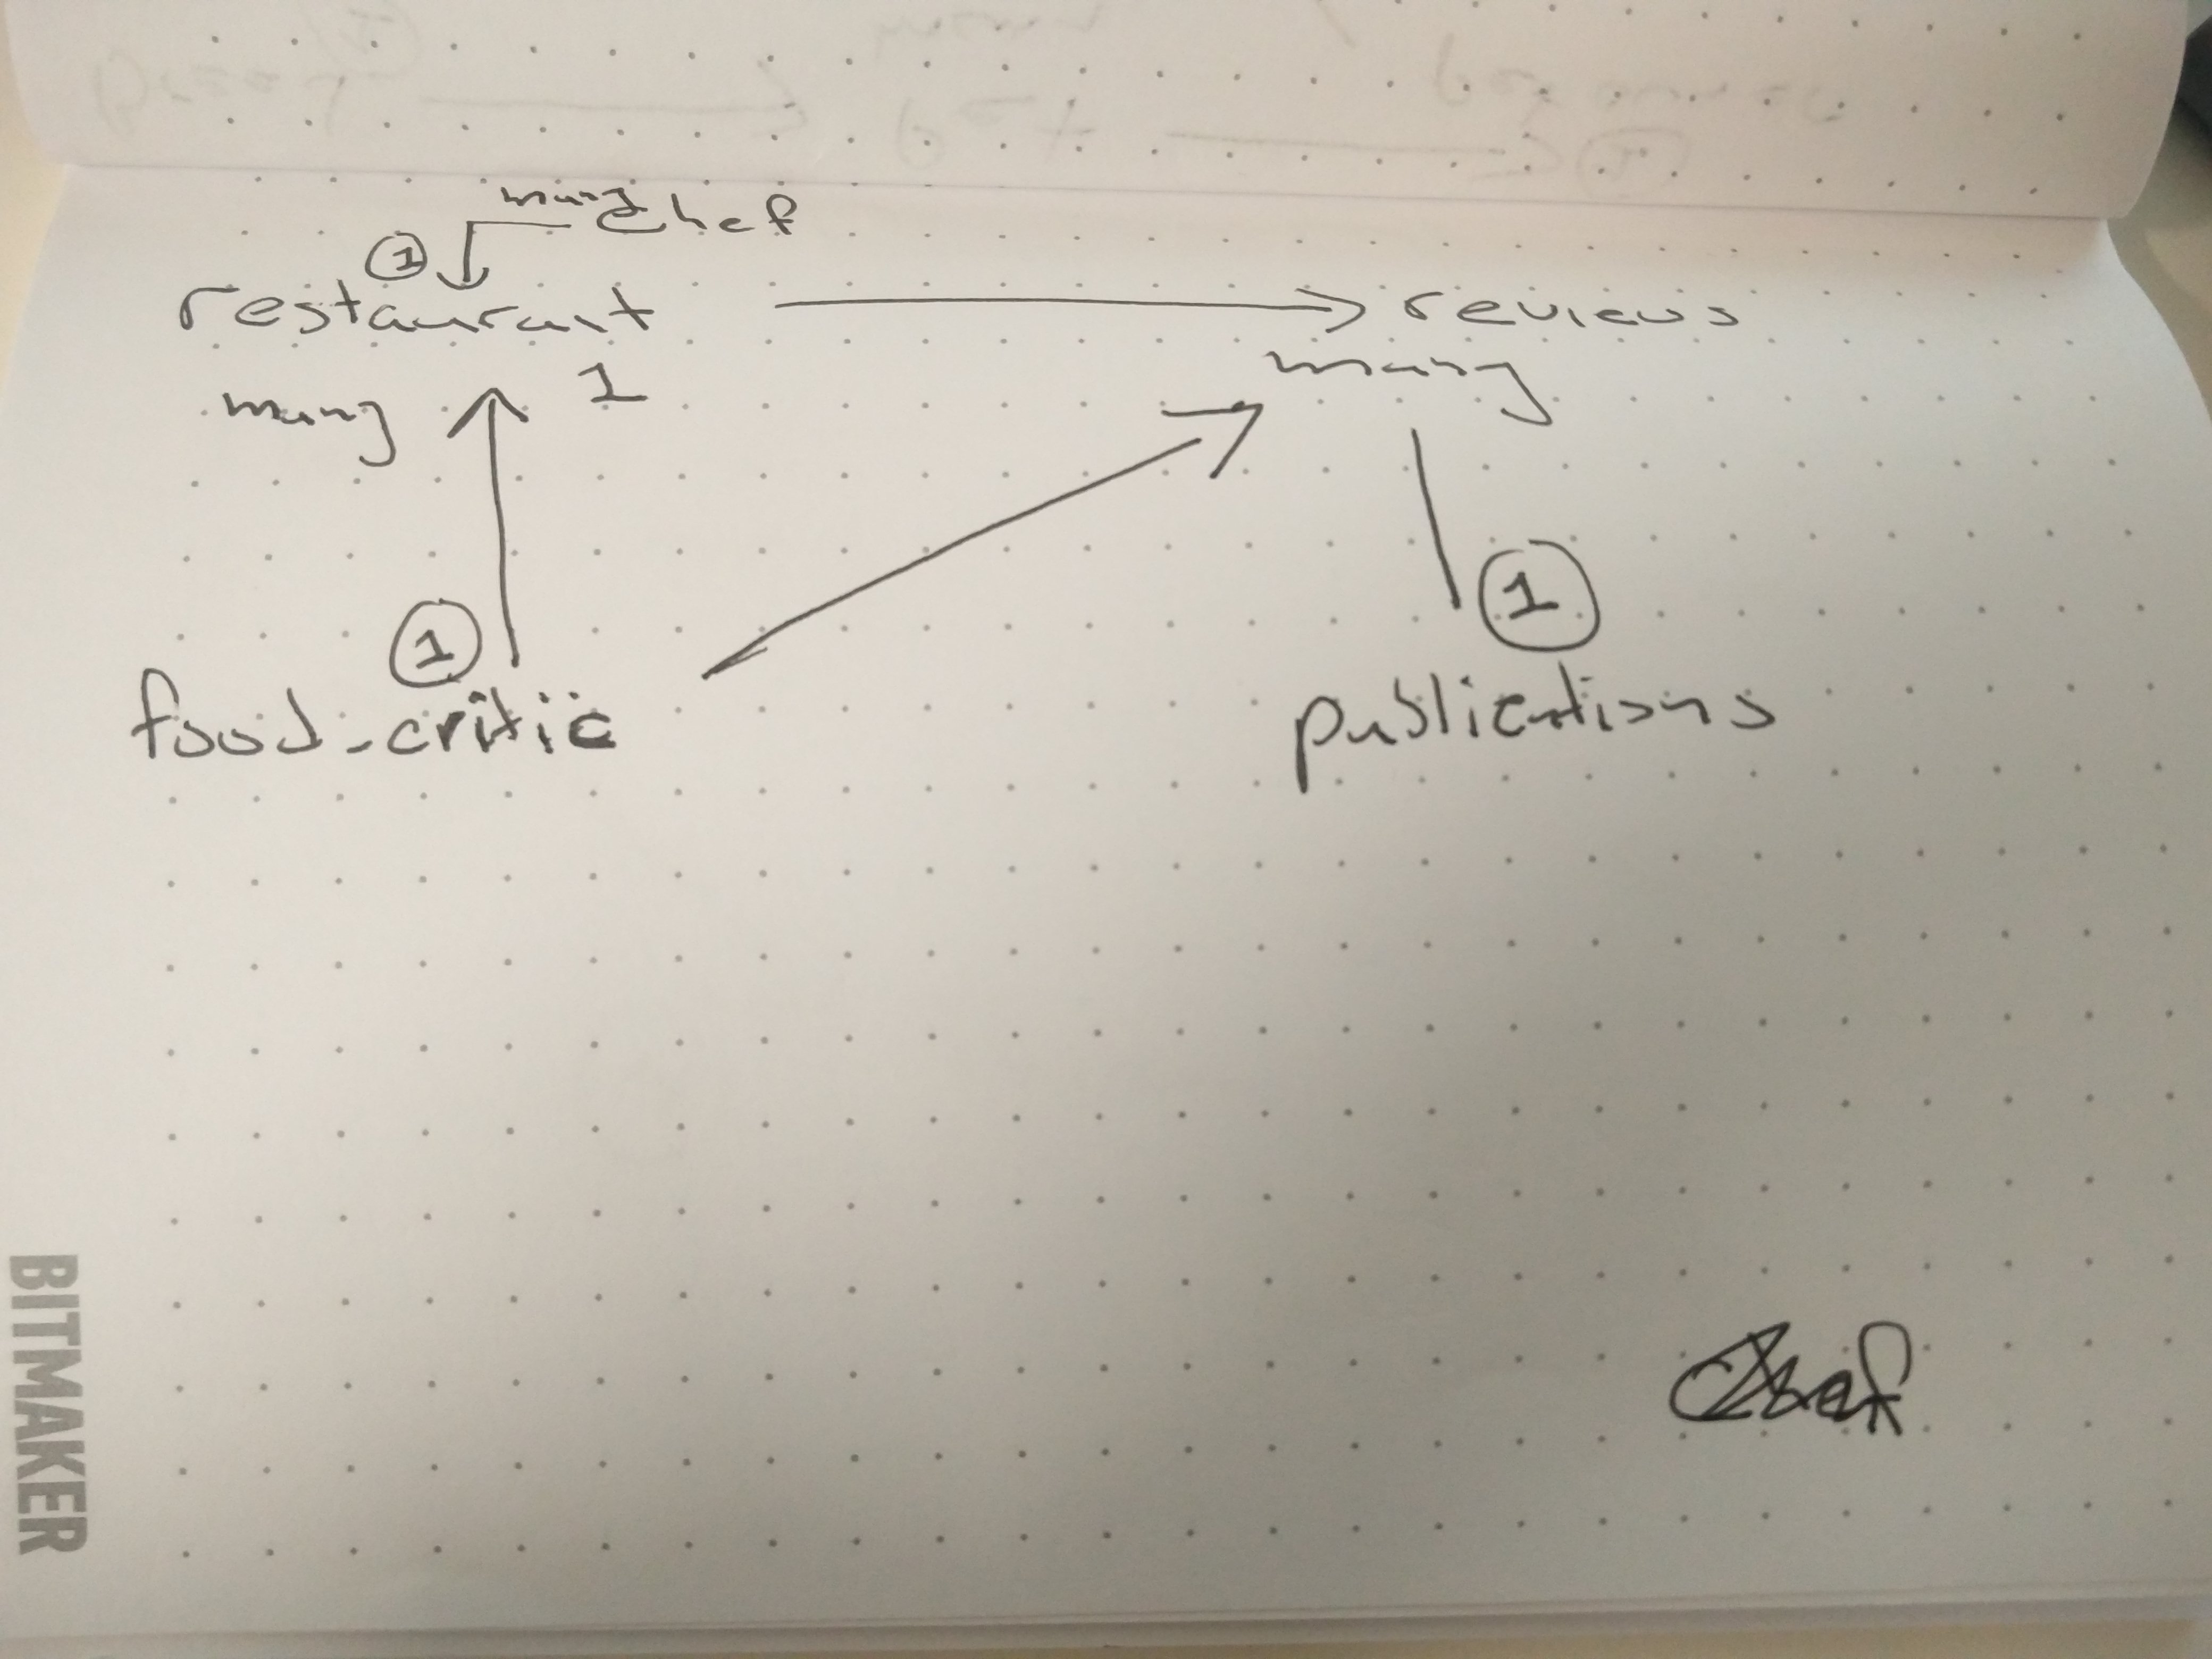 many chef
①
restaurant reviews
many 1 many
① ①
food-critic publications
Chef
BITMAKER